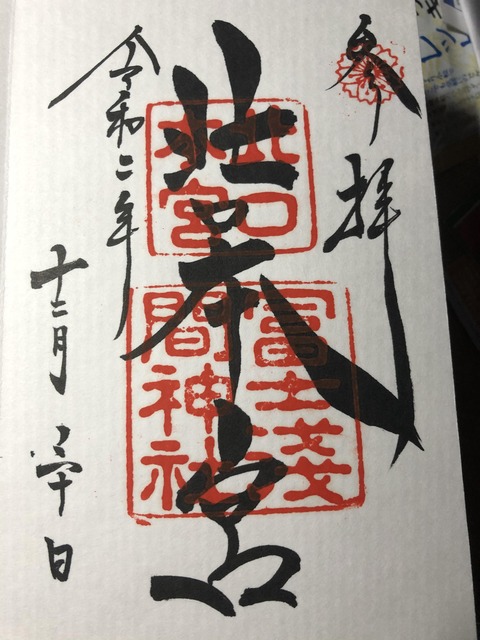 奉拝
北口本宮
北口
本宮
冨士淺
間神社
令和二年
十二月三十日